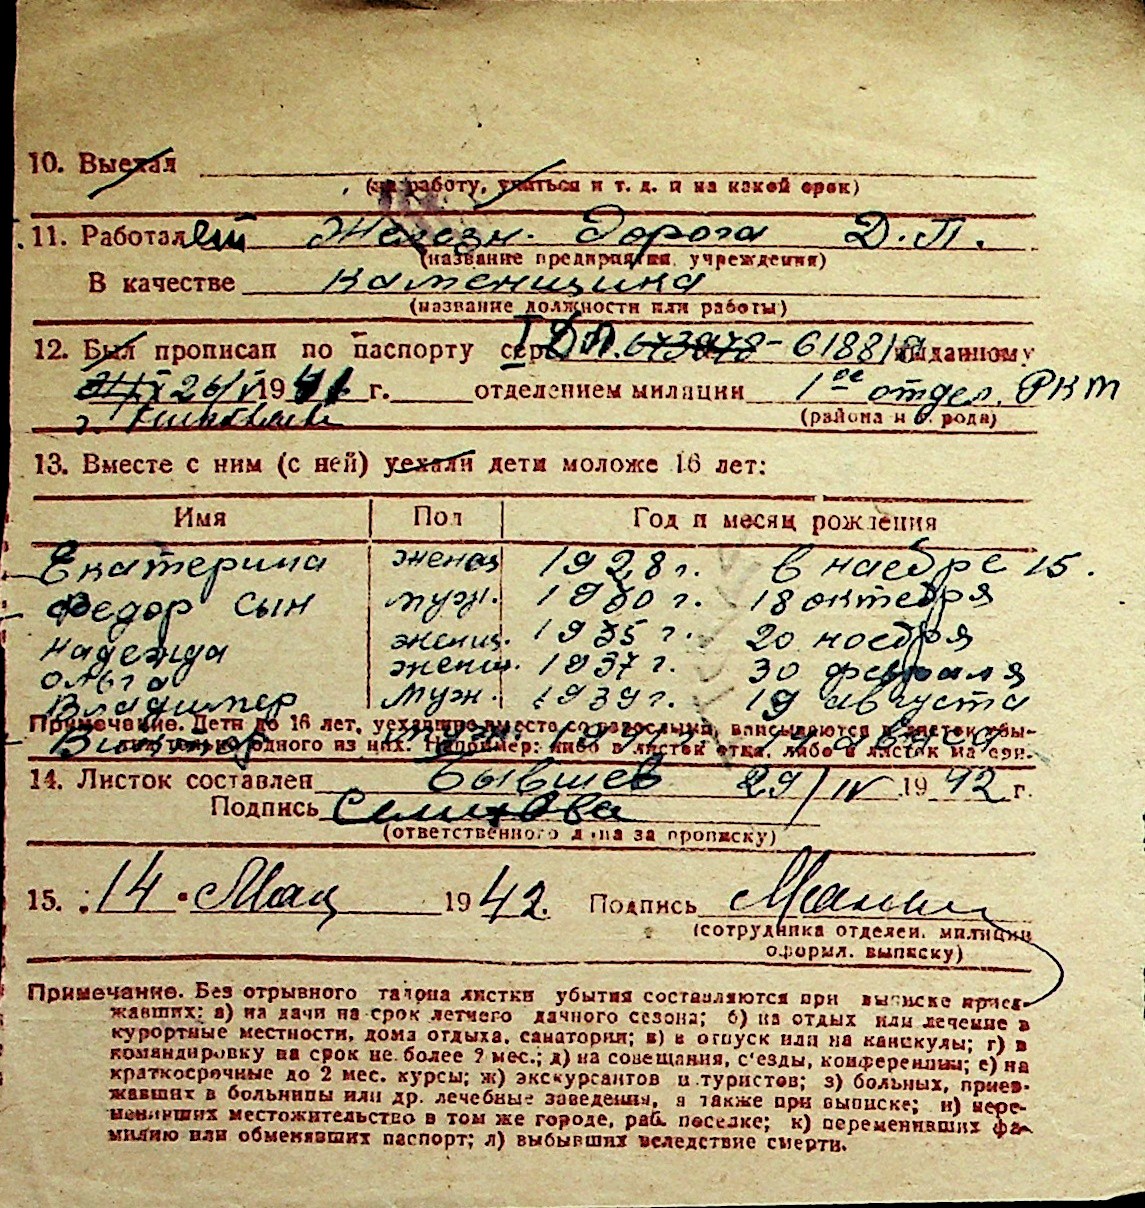 10. Выехал
(на работу, учиться и т. д. и на какой срок)
11. Работает Железн. Дорога Д.П.
(название предприятия, учреждения)
В качестве каменщика
(название должности или работы)
12. Был прописан по паспорту серия I ДП. 673978 - 618818 выданному
26/VI 1941 г. отделением милиции 1ое отдел. РКМ
(района и города)
13. Вместе с ним (с ней) уехали дети моложе 16 лет:
Имя Пол Год и месяц рождения
Екатерина женщ 1928 г. в наебре 15.
Федор сын муж. 1930 г. 18 октебря
Надежда женщ. 1935 г. 20 ноебря
Ольга женщ. 1937 г. 30 февраля
Владимер муж. 1939 г. 19 августа
Примечание. Дети до 16 лет, уехавшие вместе со взрослыми, вписываются в листок убы-
тия только одного из них. Например: либо в листок отца, либо в листок матери.
Виктор
14. Листок составлен бывшев 29/IV 1942 г.
Подпись Селихова
(ответственного лица за прописку)
15. 14 Мая 1942. Подпись
(сотрудника отделен. милиции
оформл. выписку)
Примечание. Без отрывного талона листки убытия составляются при выписке приез-
жавших: а) на дачи на срок летнего дачного сезона; б) на отдых или лечение в
курортные местности, дома отдыха, санатории; в) в отпуск или на каникулы; г) в
командировку на срок не более 2 мес.; д) на совещания, с'езды, конференции; е) на
краткосрочные до 2 мес. курсы; ж) экскурсантов и туристов; з) больных, приез-
жавших в больницы или др. лечебные заведения, а также при выписке; и) пере-
менивших местожительство в том же городе, раб. поселке; к) переменивших фа-
милию или обменявших паспорт; л) выбывших вследствие смерти.